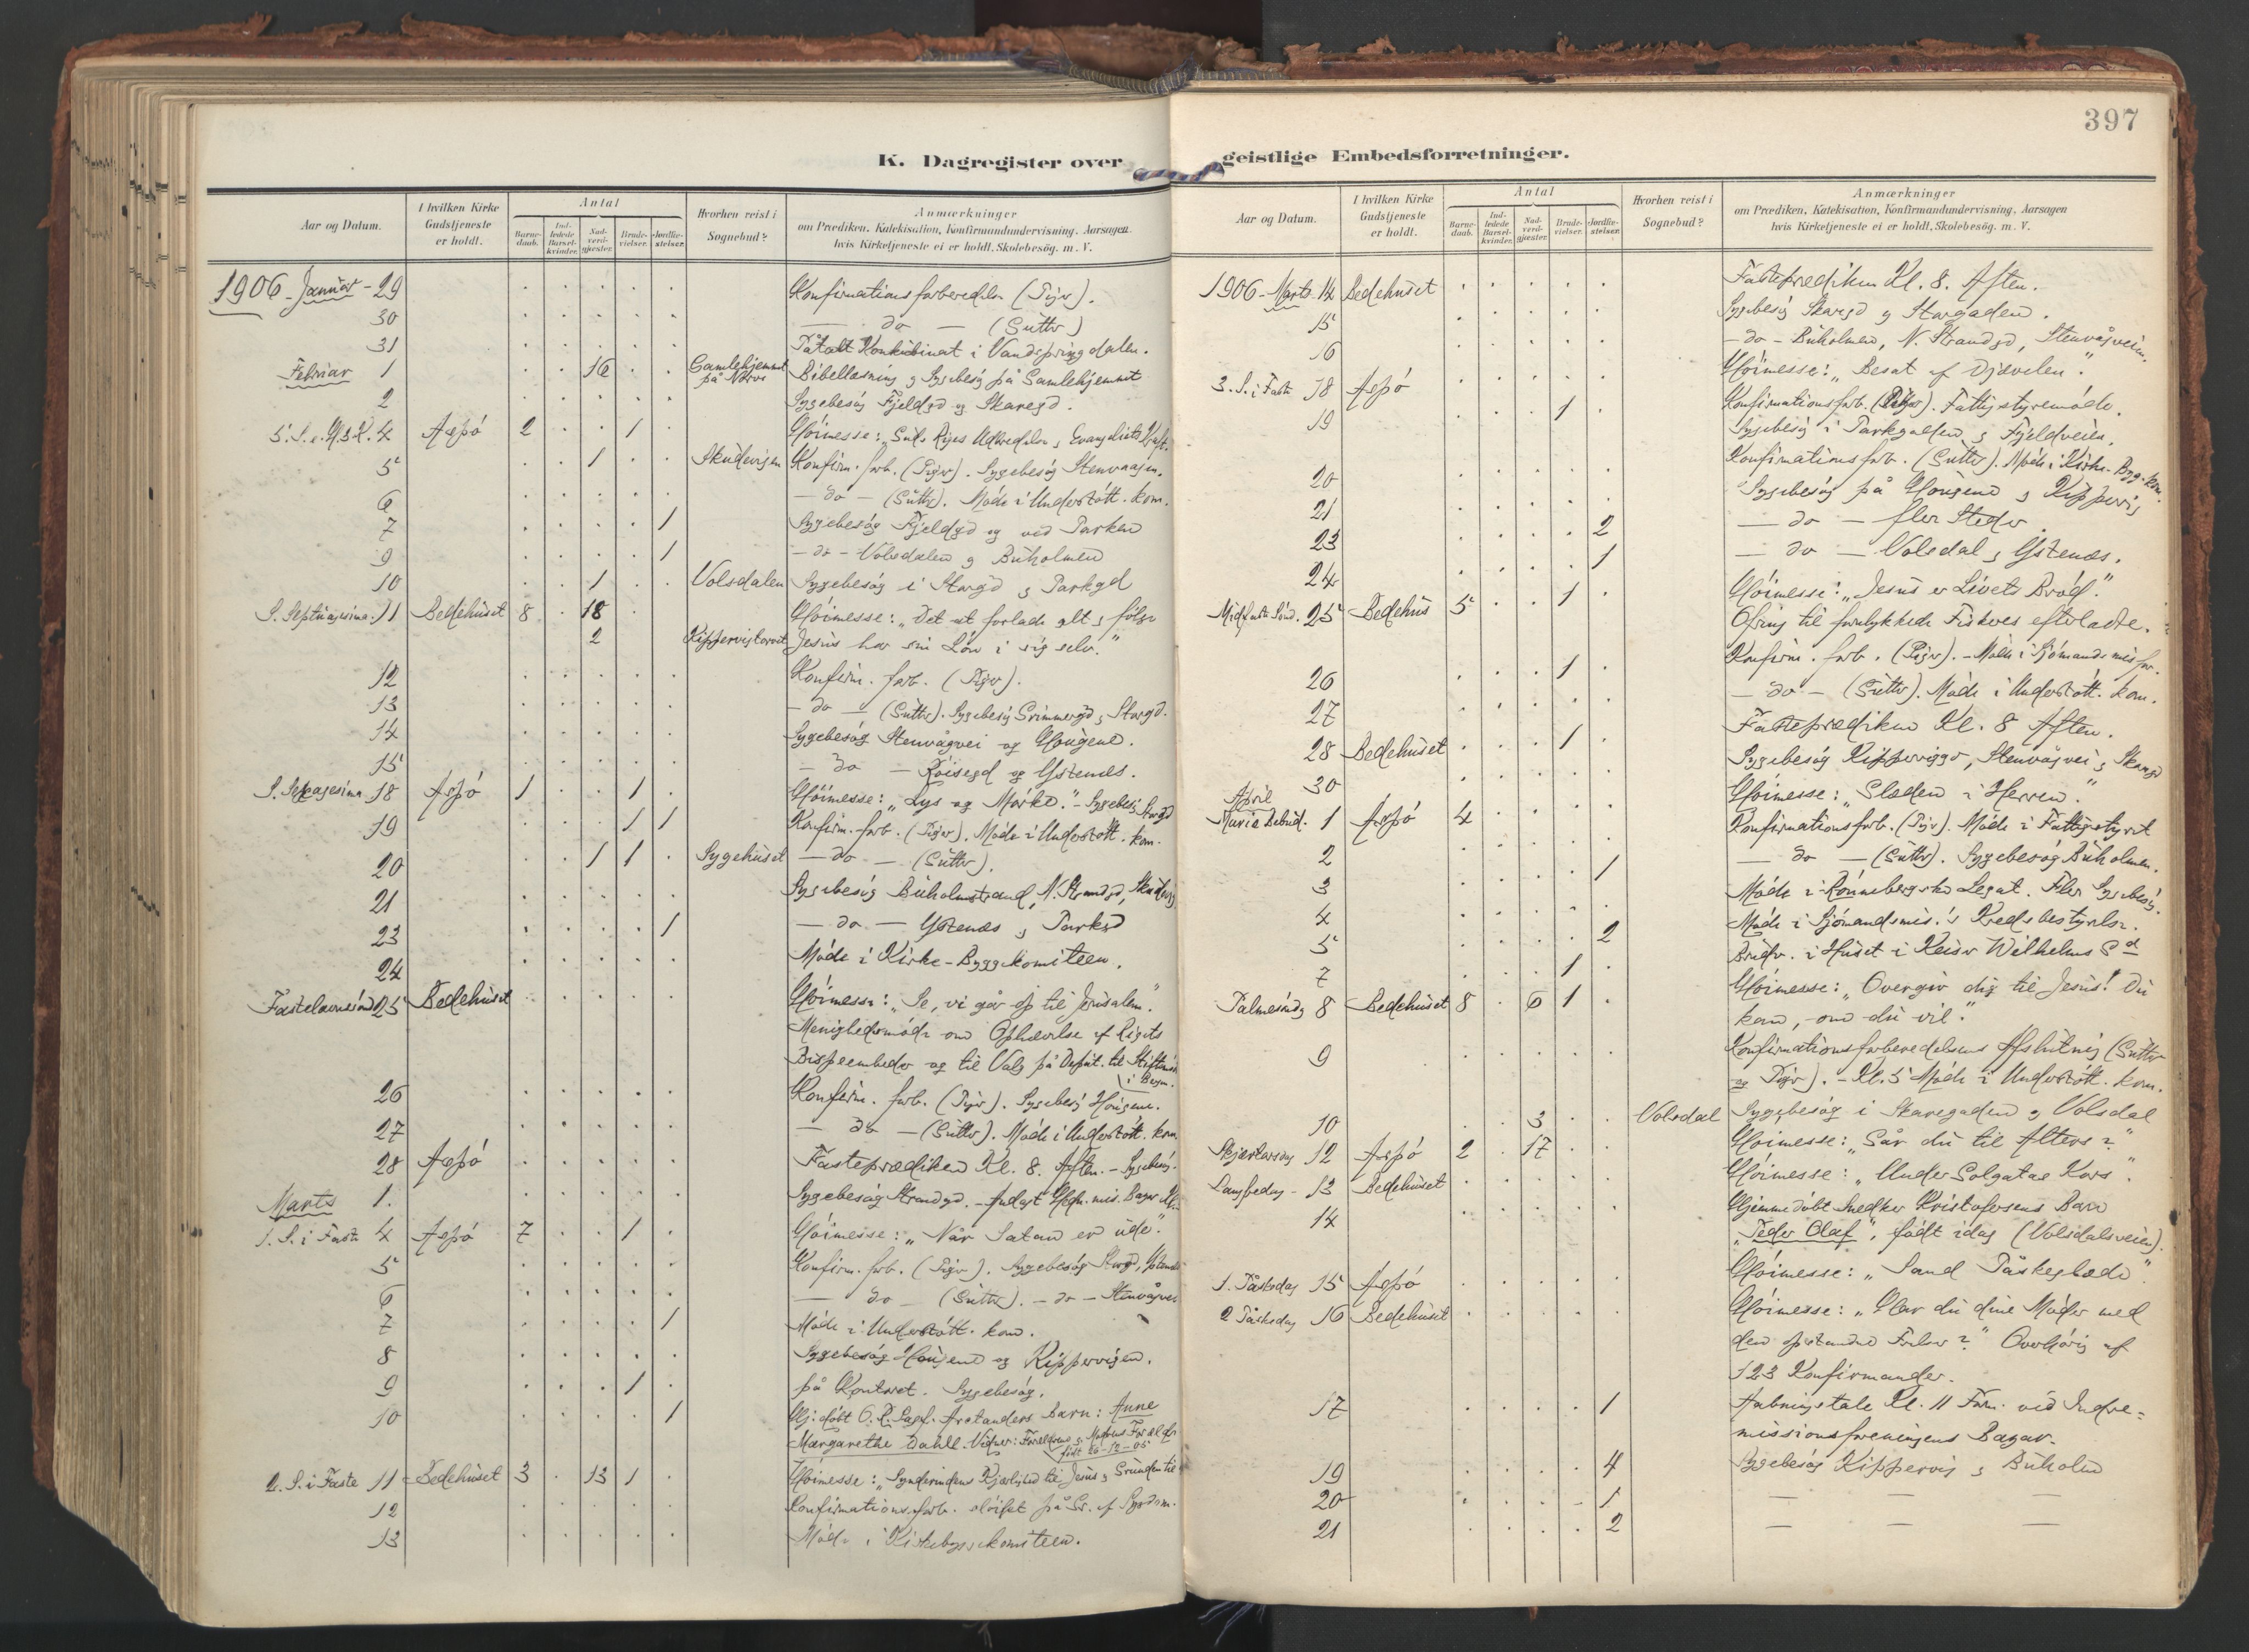 397
K. Dagregister over geistlige Embedsforretninger.
Aar og Datum. I hvilken Kirke Gudstjeneste er holdt. Antal Barnedaab. Indledede Barselkvinder. Nadverdgjæster. Brudevielser. Jordfæstelser. Hvorhen reist i Sognebud? Anmærkninger om Prædiken, Katekisation, Konfirmandundervisning, Aarsagen hvis Kirketjeneste ei er holdt, Skolebesög. m. V.
1906 - Januar - 29 Konfirmationsforberedelse (Piger).
30 — do — (Gutter)
31 Påtalt Konkubinat i Vandspringdalen.
Februar 1 16 Gamlehjemmet på Nörve Bibellæsning og Sygebesög på Gamlehjemmet
2 Sygebesög Fjeldgd og Skaregd.
5. S. e. H3K. 4 Aspö 2 1 Höimesse: „Guds Riges Udbredelse og Evangeliets Kraft.
5 1 Skudevigen Konfirm. forb. (Piger). Sygebesög Stenvaagen.
6 — do — (Gutter). Möde i Understött. kom.
7 1 Sygebesög Fjeldgd og ved Parken
9 1 — do — Volsdalen og Buholmen
10 1 Volsdalen Sygebesög i Storgd og Parkgd
S. Septuagesima. 11 Bedehuset 8 18 Höimesse: „Det at forlade alt og fölge
2 Kippervigtorvet Jesus har sin Lön i sig selv."
12 Konfirm. forb. (Piger).
13 — do — (Gutter). Sygebesög Grimmergd og Storgd.
14 Sygebesög Stenvågvei og Haugene.
15 — do — Röisegd og Ystenes.
S. Sexagesima 18 Aspö 1 1 Höimesse: „Lys og Mörke." - Sygebesög Storgd
19 1 1 Konfirm. forb. (Piger). Möde i Understött. kom.
20 1 1 Sygehuset — do — (Gutter).
21 Sygebesög Buholmstrand, N. Strandgd, Skudevig
23 1 — do — Ystenes og Parkgd
24 Möde i Kirke-Byggekomiteen.
Fastelavnsönd 25 Bedehuset Höimesse: „Se, vi går op til Jerusalem."
Menighedsmöde om Ophævelse af Rigets
Bispeembeder og til Valg på Deput. til Stiftsmöde
i Bergen.
26 Konfirm. forb. (Piger). Sygebesög Haugene.
27 — do — (Gutter). Möde i Understött. kom.
28 Aspö Fasteprædiken Kl. 8. Aften. - Sygebesög.
Marts 1. Sygebesög Strandgd. - Andagt Hedn. mis. Bazar
1. S. i Faste 4 Aspö 7 1 Höimesse: „Når Satan er ude".
5 Konfirm. forb. (Piger). Sygebesög Storgd, Ystenes
6 — do — (Gutter). - do - Stenvågvei
7 1 Möde i Understött. kom.
8 Sygebesög Haugene og Kippervigen.
9 1 på Kontoret. Sygebesög.
10 1 Hj. döbt Barn: Anne
Margarethe Dahll. Vidner: Forældrene og Moderens Forældre
född 20-12-05
2. S. i Faste 11 Bedehuset 3 13 1 Höimesse: „Synderindens Kjærlighed til Jesus og Grunden til
12 Konfirmations.forb. slöifet på Gr. af Sygdom.
13 Möde i Kirkebyggekomiteen.
Aar og Datum. I hvilken Kirke Gudstjeneste er holdt. Antal Barnedaab. Indledede Barselkvinder. Nadverdgjæster. Brudevielser. Jordfæstelser. Hvorhen reist i Sognebud? Anmærkninger om Prædiken, Katekisation, Konfirmandundervisning, Aarsagen hvis Kirketjeneste ei er holdt, Skolebesög. m. V.
1906 - Marts 14 Bedehuset Fasteprædiken Kl. 8. Aften.
15 Sygebesög Skaregd og Storgaden.
16 — do — Buholmen, N. Strandgd, Stenvågveien.
3. S. i Faste 18 Aspö Höimesse: „Besat af Djævelen."
19 1 Konfirmationsforb. (Piger). Fattigstyremöde.
Sygebesög i Parkgaden og Fjeldveien.
20 Konfirmationsforb. (Gutter). Möde i Kirke-Bygg. kom.
21 Sygebesög på Haugene og Kippervig
23 2 — do — flere Steder
24 1 — do — Volsdal og Ystenes.
Midfaste Sönd. 25 Bedehus 5 1 Höimesse: „Jesus er Livets Bröd."
Ofring til forulykkede Fiskeres efterladte.
26 1 Konfirm. forb. (Piger). - Möde i Sjömandsmisfor.
27 — do — (Gutter). Möde i Understött. kom.
28 Bedehuset 1 Fasteprædiken Kl. 8 Aften.
30 Sygebesög Kippervigen, Stenvågvei og Skaregd
April
Mariæ Bebud. 1 Aspö 4 Höimesse: „Glæden i Herren."
2 Konfirmationsforb. (Piger). Möde i Fattigstyret
3 1 — do — (Gutter). Sygebesög Buholmen.
4 Möde i Rönnebergske Legat. Flere Sygebesög.
5 2 Möde i Sjömandsmis.'s Kredsbestyrelse.
7 1 Brudv. i Huset i Keiser Wilhelms Gd
Palmesöndg 8 Bedehuset 8 6 1 Höimesse: „Overgiv dig til Jesus! Du
kan, om du vil."
9 Konfirmationsforberedelsens Afslutning (Gutter
og Piger). - Kl. 5 Möde i Understött. kom.
10 3 Volsdal Sygebesög i Skaregaden og Volsdal
Skjærtorsdag 12 Aspö 2 17 Höimesse: „Går du til Alters?"
Langfredag - 13 Bedehuset Höimesse: „Under Golgatas Kors".
14 Hjemmedöbt Snedker Kristofersens Barn
„Peder Olaf", födt idag (Volsdalsveien).
1. Påskedag 15 Aspö Höimesse: „Sand Påskeglæde".
2 Påskedag 16 Bedehuset Höimesse: „Har du dine Möder med
den opstandne Frelser?" Overhöring af
123 Konfirmander.
17 1 Aabningstale Kl. 11 Form. ved Indre-
missionsforeningens Bazar.
19 4 Sygebesög Kippervig og Buholm
20 1 — — —
21 2 — — —